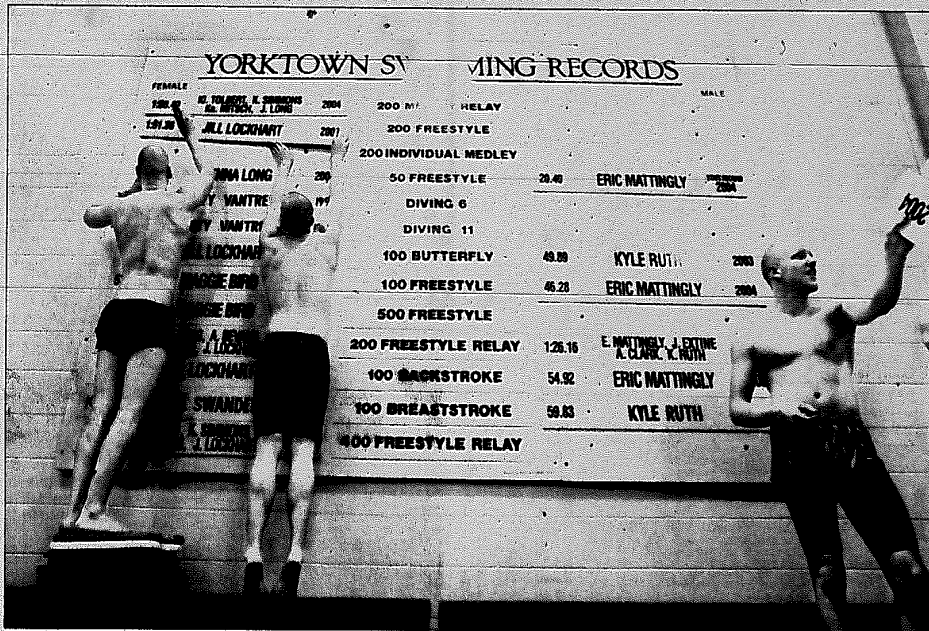 YORKTOWN SW MING RECORDS
FEMALE
MALE
KI. TOLBERT, K. SIMMONS 2004 200 ME RELAY
J. LONG
JILL LOCKHART 2001 200 FREESTYLE
200 INDIVIDUAL MEDLEY
NNA LONG 200 50 FREESTYLE 20.40 ERIC MATTINGLY 2004
Y VANTRE 199 DIVING 6
VANTR DIVING 11
LL LOCKHAR 100 BUTTERFLY 49.89 KYLE RUTH 2003
MAGGIE BIRD 100 FREESTYLE 46.28 ERIC MATTINGLY 2004
GGIE BIRD 500 FREESTYLE
J. LOCK 200 FREESTYLE RELAY 1:26.16 E. MATTINGLY, J. EXTINE
A. CLARK, K. RUTH
LOCKHART 100 BACKSTROKE 54.92 ERIC MATTINGLY
SWANDE 100 BREASTSTROKE 59.63 KYLE RUTH
K. SIMMONS
J. LOCKHA 400 FREESTYLE RELAY
2004